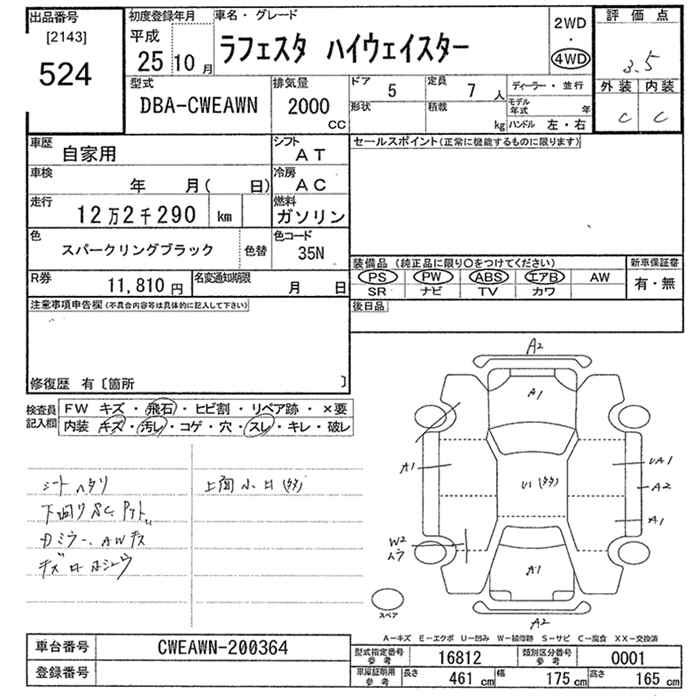 出品番号
[2143]
524
初度登録年月
平成
25 10月
車名・グレード
ラフェスタ ハイウェイスター
2WD
・
4WD
評価点
3.5
外装 内装
C C
型式
DBA-CWEAWN
排気量
2000
CC
ドア 5
定員 7 人
形状
積載 kg
ディーラー・並行
モデル年式 年
ハンドル 左・右
車歴 自家用
シフト AT
車検 年 月( 日)
冷房 AC
走行 12万2千290 km
燃料 ガソリン
色 スパークリングブラック 色替
色コード 35N
R券 11,810円
名変通知期限 月 日
セールスポイント(正常に機能するものに限ります)
装備品(純正品に限り○をつけてください)
PS PW ABS エアB AW
SR ナビ TV カワ
新車保証書
有・無
後日品
注意事項申告欄(不具合内容等は具体的に記入して下さい)
修復歴 有〔箇所 〕
検査員記入欄
FW キズ・飛石・ヒビ割・リペア跡・×要
内装 キズ・汚レ・コゲ・穴・スレ・キレ・破レ
シートヘタリ
上面小凹(タタ)
下回りSC,
Dミラー、AWキズ
A2
A1
A1
U1(タタ)
UA1
A2
A1
W2
ムラ
A1
A2
スペア
A－キズ E－エクボ U－凹み W－補修跡 S－サビ C－腐食 XX－交換済
車台番号 CWEAWN-200364
登録番号
型式指定番号 参考 16812
類別区分番号 参考 0001
車庫証明用 参考 長さ 461cm 幅 175cm 高さ 165cm